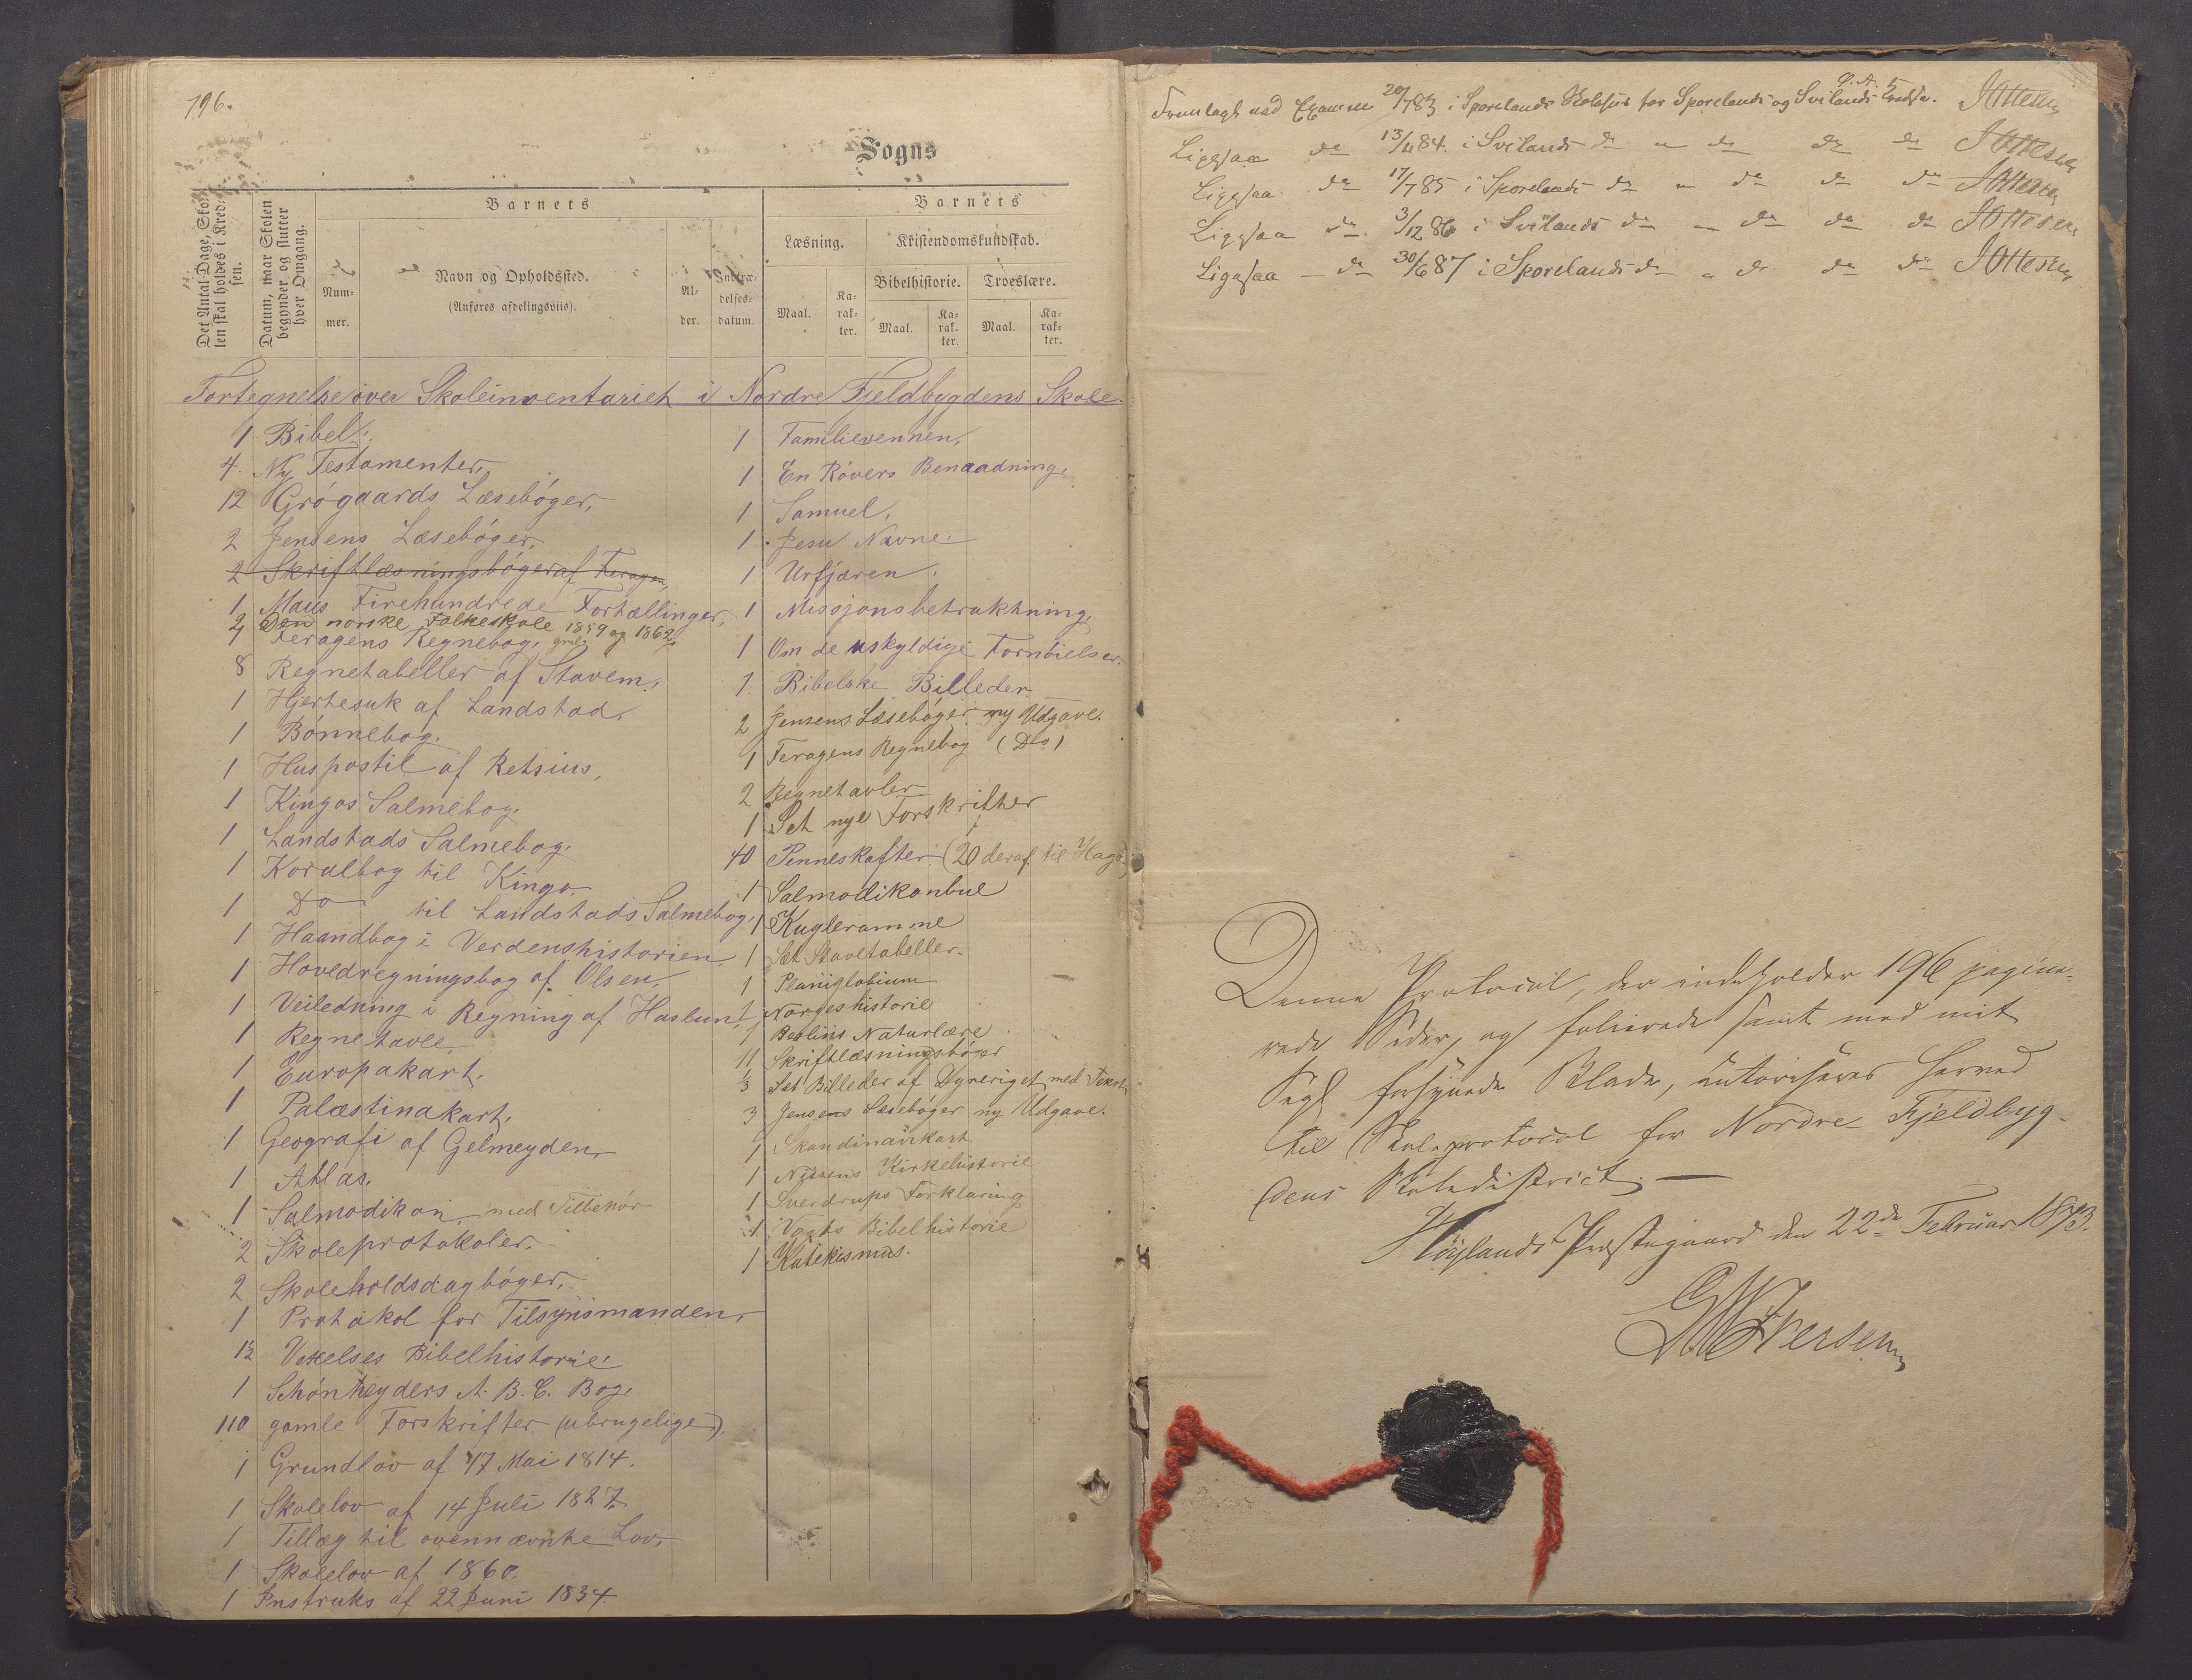 196.
Sogns
Det Antal Dage, Sko-
len skal holdes i Kred-
sen.
Datum, naar Skolen
begynder og slutter
hver Omgang.
Barnets
Barnets
Num-
mer.
Navn og Opholdssted.
(Anføres afdelingsviis).
Al-
der.
Indtræ-
delses-
datum.
Læsning.
Kristendomskundskab.
Maal.
Ka-
rak-
ter.
Bibelhistorie.
Troeslære.
Maal.
Ka-
rak-
ter.
Maal.
Ka-
rak-
ter.
Fortegnelse over Skoleinventariet i Nordre Fjeldbygdens Skole.
1 Bibel.
4. Ny Testamenter,
12 Grögaards Læseböger,
2 Jensens Læseböger,
2 Skriftlæsningsböger af Feragen,
1 Maus Firehundrede Fortællinger,
2 Den norske Folkeskole 1859 og 1862,
1 Feragens Regnebog, gml.
8 Regnetabeller af Stavem,
1 Hjertesuk af Landstad,
1 Bönnebog.
1 Huspostil af Retsius,
1 Kingos Salmebog,
1 Landstads Salmebog,
1 Koralbog til Kingo,
1 Do til Landstads Salmebog,
1 Haandbog i Verdenshistorien
1 Hovedregningsbog af Olsen,
1 Veiledning i Regning af Haslun,
1 Regnetavle,
1 Europakart,
1 Palæstinakart,
1 Geografi af Gelmeyden,
1 Atlas,
1 Salmodikon, med Tilbehör
2 Skoleprotokoler,
2 Skoleholdsdagböger,
1 Protokol for Tilsynsmanden,
12 Vexelses Bibelhistorie,
1 Schönheyders A. B. C. Bog,
110 gamle Forskrifter (ubrugelige)
1 Grundlov af 17 Mai 1814,
1 Skolelov af 14 Juli 1827,
1 Tillæg til ovennævnte Lov,
1 Skolelov af 1860.
1 Instruks af 22 Juni 1834
1 Familievennen,
1 En Rövers Benaadning,
1 Samuel,
1 Jesu Navne.
1 Urfjæren,
1 Missjonsbetraktning,
1 Om de uskyldige Fornöielser.
1 Bibelske Billeder.
2 Jensens Læseböger ny Udgave.
1 Feragens Regnebog (Do)
2 Regnetavler
1 Set nye Forskrifter
40 Penneskafter (20 deraf til Haga)
1 Salmodikonbue
1 Kugleramme
1 Sæt Stavetabeller.
1 Planiglobium
1 Norges historie
1 Berlins Naturlære
11 Skriftlæsningsböger
1/3 Set Billeder af Dyreriget med Text
3 Jensens Læseböger ny Udgave.
1 Skandinavkart
1 Nissens Kirkehistorie
1 Sverdrups Forklaring
1 Vogts Bibelhistorie
1 Katekismus.
Fremlagt ved Examen 20/7 83 i Sporelands Skolehus for Sporelands og Svilands Kredse. JOttesen
Ligesaa do 13/11 84. i Svilands do do do do JOttesen
Ligesaa do 17/7 85 i Sporelands do do do do JOttesen
Ligesaa do 3/12 86 i Svilands do do do do JOttesen
Ligesaa do 30/6 87 i Sporelands do do do do JOttesen
Denne Protocol, der indeholder 196 pagine-
rede Sider, og folierede samt med mit
Segl forsynede Blade, autoriseres herved
til Skoleprotocol for Nordre Fjeldbyg-
dens Skoledistrict. —
Höylands Præstegaard den 22de Februar 1873.
Iversen